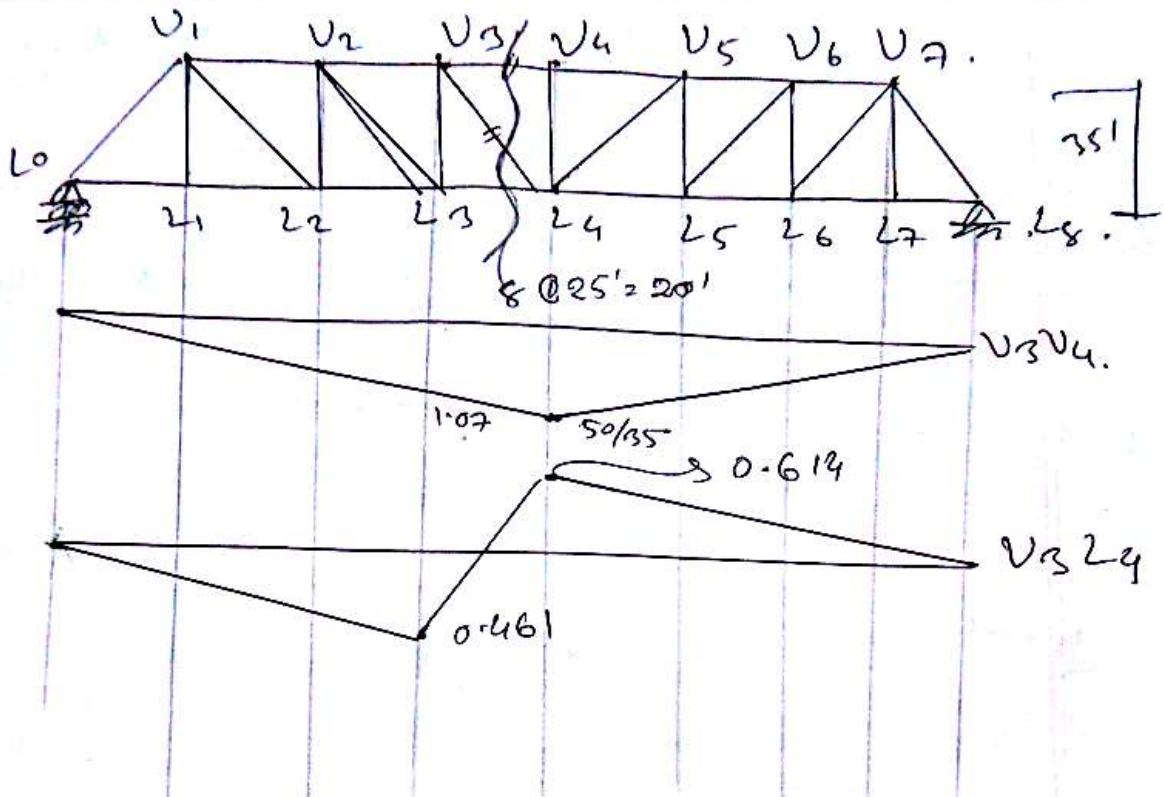 U1 U2 U3 U4 U5 U6 U7.
35'
L0
L1 L2 L3 L4 L5 L6 L7 L8.
8 @ 25' = 20'
U3U4.
1.07 50/35
0.614
U3L4
0.461